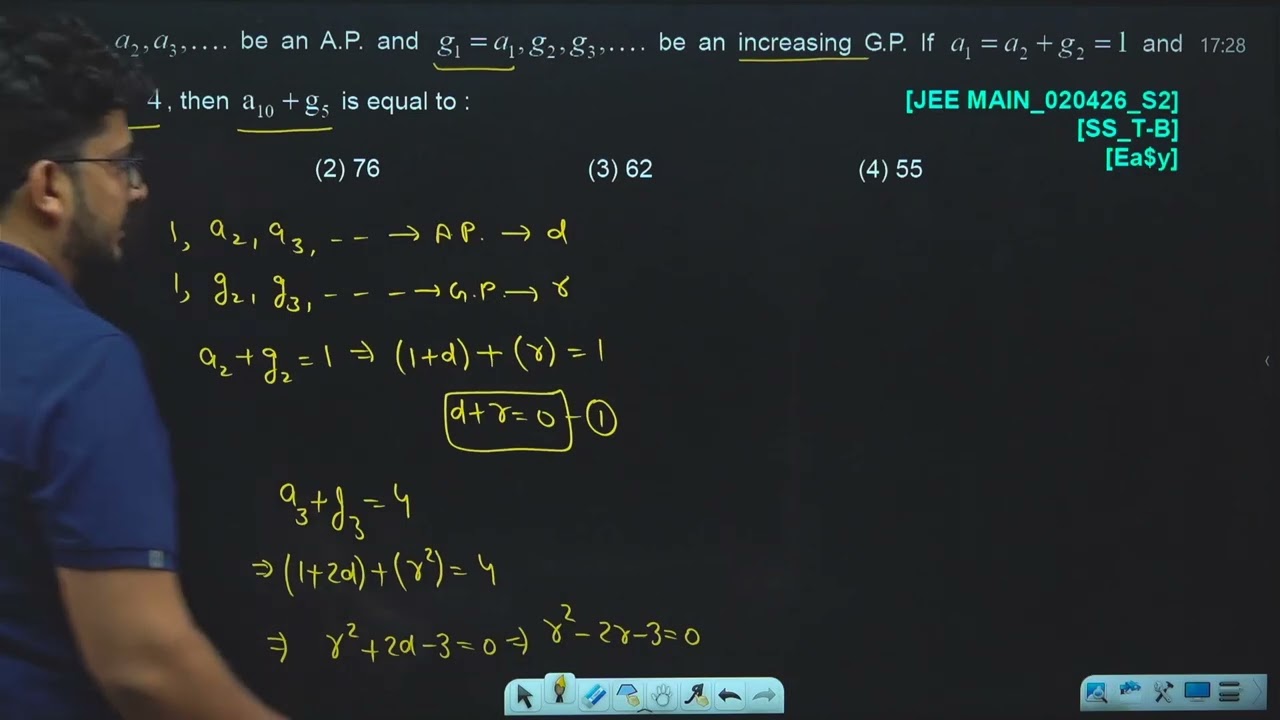 a₂, a₃, .... be an A.P. and g₁ = a₁, g₂, g₃, .... be an increasing G.P. If a₁ = a₂ + g₂ = 1 and 17:28
4, then a₁₀ + g₅ is equal to :
[JEE MAIN_020426_S2]
[SS_T-B]
[Ea$y]
(2) 76 (3) 62 (4) 55
1, a₂, a₃, -- → A.P. → d
1, g₂, g₃, --- → G.P. → r
a₂ + g₂ = 1 ⇒ (1+d) + (r) = 1
d + r = 0 - ①
a₃ + g₃ = 4
⇒ (1+2d) + (r²) = 4
⇒ r² + 2d - 3 = 0 ⇒ r² - 2r - 3 = 0